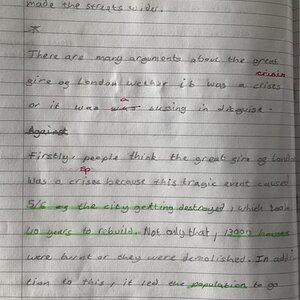 made the streets wider.
*
There are many arguments about the great
crisis
fire of London wether it was a crises
a
or it was was blssing in disguise.
Against
Firstly, people think the great fire of Londo
sp
was a crises because this tragic event caused
5/6 of the city getting destroyed, which took
40 years to rebuild. Not only that, 13000 houses
were burnt or they were demolished. In addi
tion to this, it led the population to go